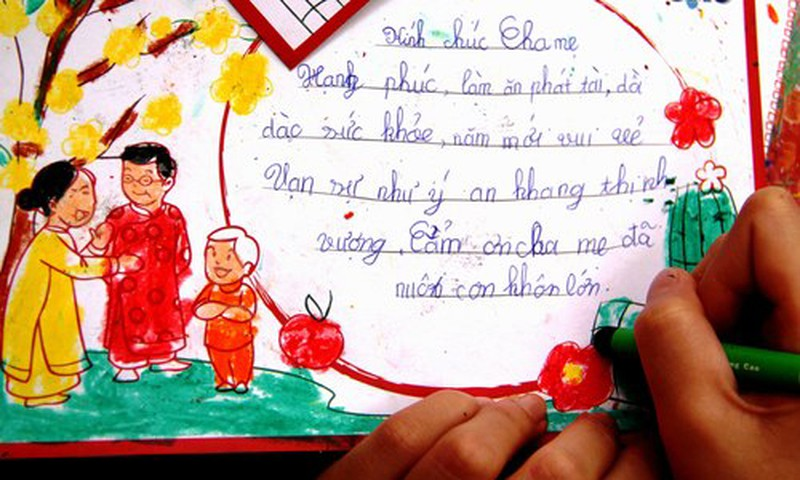 Kính chúc Cha mẹ
Hạnh phúc, làm ăn phát tài, dồi
dào sức khỏe, năm mới vui vẻ
Vạn sự như ý an khang thịnh
vượng. Cảm ơn cha mẹ đã
nuôi con khôn lớn.